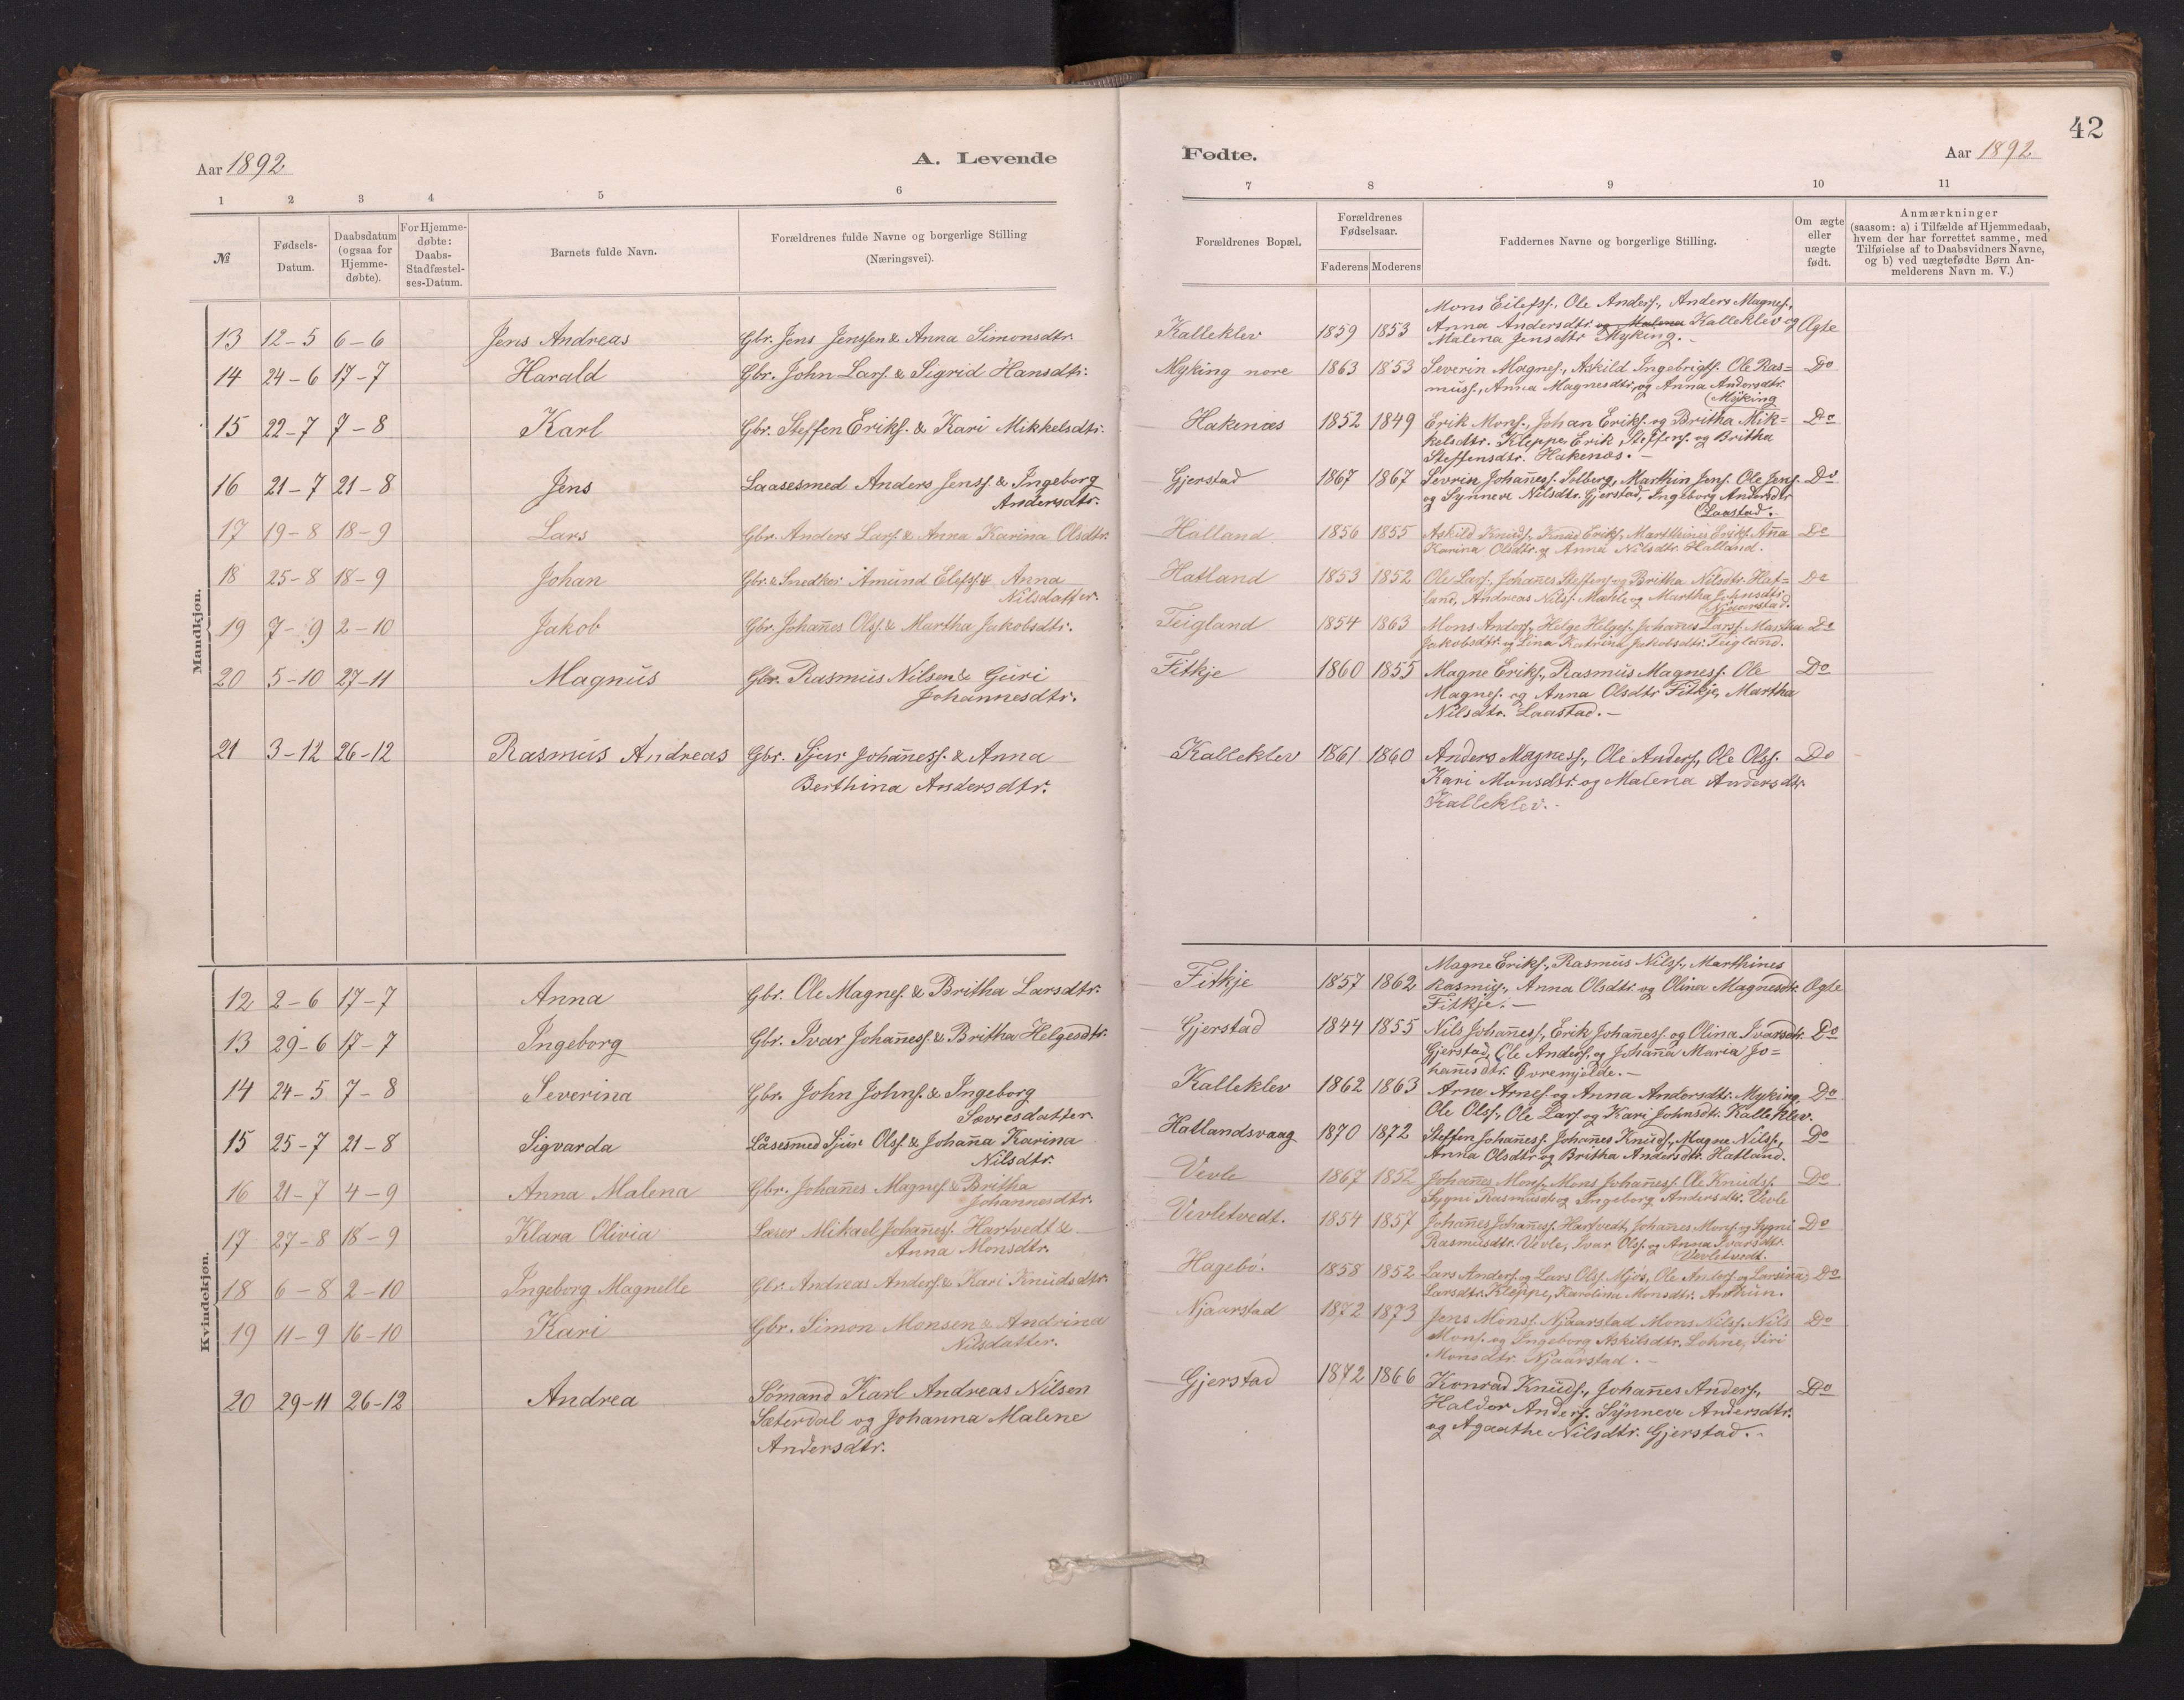 42
Aar 1892
A. Levende
Fødte.
Aar 1892
1 2 3 4 5 6 7 8 9 10 11
№
Fødsels-
Datum.
Daabsdatum
(ogsaa for
Hjemme-
døbte).
For Hjemme-
døbte:
Daabs-
Stadfæstel-
ses-Datum.
Barnets fulde Navn.
Forældrenes fulde Navne og borgerlige Stilling
(Næringsvei).
Forældrenes Bopæl.
Forældrenes
Fødselsaar.
Faderens Moderens
Faddernes Navne og borgerlige Stilling.
Om ægte
eller
uægte
født.
Anmærkninger
(saasom: a) i Tilfælde af Hjemmedaab,
hvem der har forrettet samme, med
Tilføielse af to Daabsvidners Navne,
og b) ved uægtefødte Børn An-
melderens Navn m. V.)
Mandkjøn.
13 12-5 6-6 Jens Andreas Gbr. Jens Jenssen & Anna Simonsdtr. Kalleklev 1859 1853 Ægte
Mons Eilefss., Ole Anderss., Anders Magness.,
Anna Andersdtr. og Malena Kalleklev og
Malena Jensdtr Myking.-
14 24-6 17-7 Harald Gbr. John Larss. & Sigrid Hansdtr. Myking nore 1863 1853 Do
Severin Magness., Askild Ingebrigts. Ole Ras=
muss., Anna Magnesdtr, og Anna Andersdtr.
Myking
15 22-7 7-8 Karl Gbr. Steffen Erikss. & Kari Mikkelsdtr. Hakenæs 1852 1849 Do
Erik Monss., Johan Erikss. og Britha Mik=
kelsdtr. Kleppe, Erik Steffenss. og Britha
Steffensdtr. Hakenæs.-
16 21-7 21-8 Jens Laasesmed Anders Jenss. & Ingeborg
Andersdtr. Gjerstad 1867 1867 Do
Sevrin Johañess. Solberg, Marthin Jenss. Ole Jenss.
og Synneve Nilsdtr. Gjerstad, Ingeborg Andersdtr
Laastad.
17 19-8 18-9 Lars Gbr. Anders Larss. & Anna Karina Olsdtr. Halland 1856 1855 Do
Askild Knudss., Knud Erikss., Marthines Erikss. Aña
Karina Olsdtr. og Anna Nilsdtr. Halland.
18 25-8 18-9 Johan Gbr. & Snedker Amund Elefss. & Anna
Nilsdatter. Hatland 1853 1852 Do
Ole Larss., Johañes Steffenss. og Britha Nilsdtr. Hat=
land, Andreas Nilss. Mahle og Martha Johnsdtr.
Njaarstad.
19 7-9 2-10 Jakob Gbr. Johañes Olss. & Martha Jakobsdtr. Teigland 1854 1863 Do
Mons Anderss., Helge Helgess. Johañes Larss. Martha
Jakobsdtr. og Lina Katrina Jakobsdtr. Teigland.
20 5-10 27-11 Magnus Gbr. Rasmus Nilsen & Guri
Johannesdtr. Fitkje 1860 1855 Do
Magne Erikss., Rasmus Magness. Ole
Magness. og Anna Olsdtr Fitkje, Martha
Nilsdtr. Laastad.-
21 3-12 26-12 Rasmus Andreas Gbr. Sjur Johañess. & Anna
Berthina Andersdtr. Kalleklev 1861 1860 Do
Anders Magness., Ole Anderss., Ole Olss.
Kari Monsdtr. og Malena Andersdtr.
Kalleklev.-
Kvindekjøn.
12 2-6 17-7 Anna Gbr. Ole Magness. & Britha Larsdtr. Fitkje 1857 1862 Ægte
Magne Erikss., Rasmus Nilss., Marthines
Rasmuss., Anna Olsdtr. og Olina Magnesdtr
Fitkje.-
13 29-6 17-7 Ingeborg Gbr. Ivar Johañess. & Britha Helgesdtr. Gjerstad 1844 1855 Do
Nils Johañess., Erik Johañess. og Olina Ivarsdtr.
Gjerstad, Ole Anderss. og Johaña Maria Jo=
hañesdtr. Øvremjelde.-
14 24-5 7-8 Severina Gbr. John Johnss. & Ingeborg
Sævresdatter Kalleklev 1862 1863 Do
Arne Arness. og Anna Andersdtr. Myking,
Ole Olss., Ole Larss. og Kari Johnsdtr. Kalleklev.
15 25-7 21-8 Sigvarda Låsesmed Sjur Olss. & Johaña Karina
Nilsdtr. Hatlandsvaag 1870 1872 Do
Steffen Johañess. Johañes Knudss., Magne Nilss.,
Anna Olsdtr og Britha Andersdtr. Hatland.
16 21-7 4-9 Anna Malena Gbr. Johañes Magness. & Britha
Johannesdtr. Vevle 1867 1852 Do
Johañes Monss., Mons Johañess. Ole Knudss.
Sygni Rasmusd. og Ingeborg Andersdtr. Vevle
17 27-8 18-9 Klara Olivia Lærer Mikael Johañess. Hartvedt &
Anna Monsdtr. Vevletvedt. 1854 1857 Do
Johañes Johañess. Hartvedt, Johañes Monss. og Sygni
Rasmusdtr. Vevle, Ivar Olss. og Anna Ivarsdtr.
Vevletvedt.
18 6-8 2-10 Ingeborg Magnelle Gbr. Andreas Anderss. & Kari Knudsdtr. Hagebø. 1858 1852 Do
Lars Anderss. og Lars Olss. Mjøs, Ole Anderss. og Larsina
Larsdtr. Kleppe, Karolina Monsdtr.
19 11-9 16-10 Kari Gbr. Simon Monsen & Andrina
Nilsdatter. Njaarstad 1872 1873 Do
Jens Monss. Njaarstad Mons Nilss. Nils
Monss. og Ingeborg Askilsdtr. Lohne, Siri
Monsdtr. Njaarstad.-
20 29-11 26-12 Andrea Sømand Karl Andreas Nilsen
Sæterdal og Johanna Malene
Andersdtr. Gjerstad 1872 1866 Do
Konrad Knudss., Johañes Anderss.,
Haldor Anderss. Synneve Andersdtr.
og Agaathe Nilsdtr. Gjerstad.-